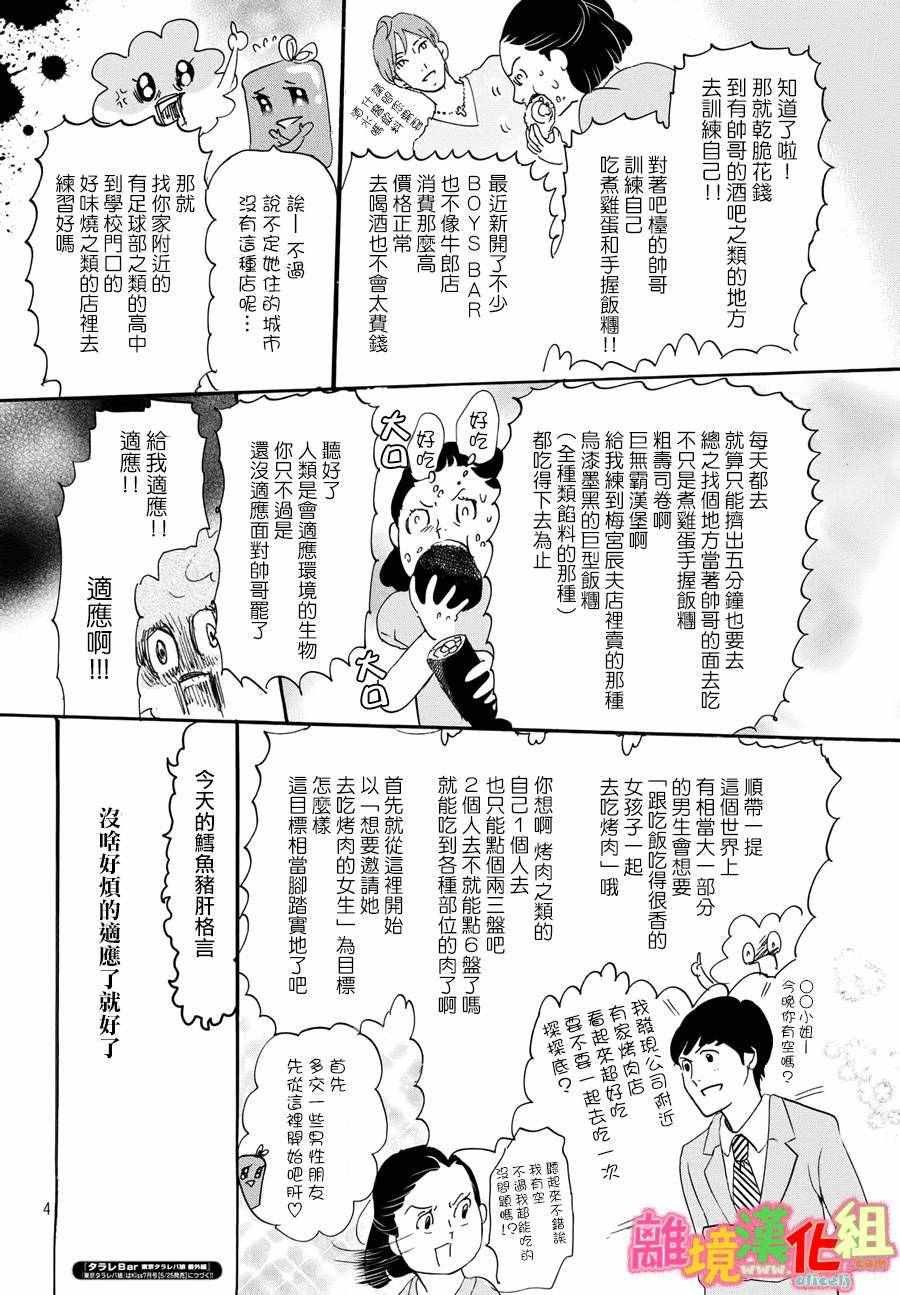 知道了啦！
那就乾脆花錢
到有帥哥的酒吧之類的地方
去訓練自己!!
對著吧檯的帥哥
訓練自己
吃煮雞蛋和手握飯糰!!
最近新開了不少
BOYS BAR
也不像牛郎店
消費那麼高
價格正常
去喝酒也不會太費錢
誒— 不過
說不定她住的城市
沒有這種店呢…
那就
找你家附近的
有足球部之類的高中
到學校門口的
好味燒之類的店裡去
練習好嗎
每天都去
就算只能擠出五分鐘也要去
總之找個地方當著帥哥的面去吃
不只是煮雞蛋手握飯糰
粗壽司卷啊
巨無霸漢堡啊
給我練到梅宮辰夫店裡賣的那種
烏漆墨黑的巨型飯糰
(全種類餡料的那種)
都吃得下去為止
好吃
好吃
大口
大口
聽好了
人類是會適應環境的生物
你只不過是
還沒適應面對帥哥罷了
給我適應!!
適應!!
適應啊!!!
順帶一提
這個世界上
有相當大一部分
的男生會想要
「跟吃飯吃得很香的
女孩子一起
去吃烤肉」哦
你想啊 烤肉之類的
自己1個人去
也只能點個兩三盤吧
2個人去不就能點6盤了嗎
就能吃到各種部位的肉了啊
首先就從這裡開始
以「想要邀請她
去吃烤肉的女生」為目標
怎麼樣
這目標相當腳踏實地了吧
〇〇小姐—
今晚你有空嗎？
我發現公司附近
有家烤肉店
看起來超好吃
要不要一起去吃一次
探探底？
聽起來不錯誒
我有空
不過我超能吃的
沒問題嗎!?
首先
多交一些男性朋友
先從這裡開始吧肝♡
今天的鱈魚豬肝格言
沒啥好煩的適應了就好了
4
タラレBar 東京タラレバ娘 番外編
「東京タラレバ娘」はKiss7月号【5/25発売】につづく!!
離境漢化組
alicelj